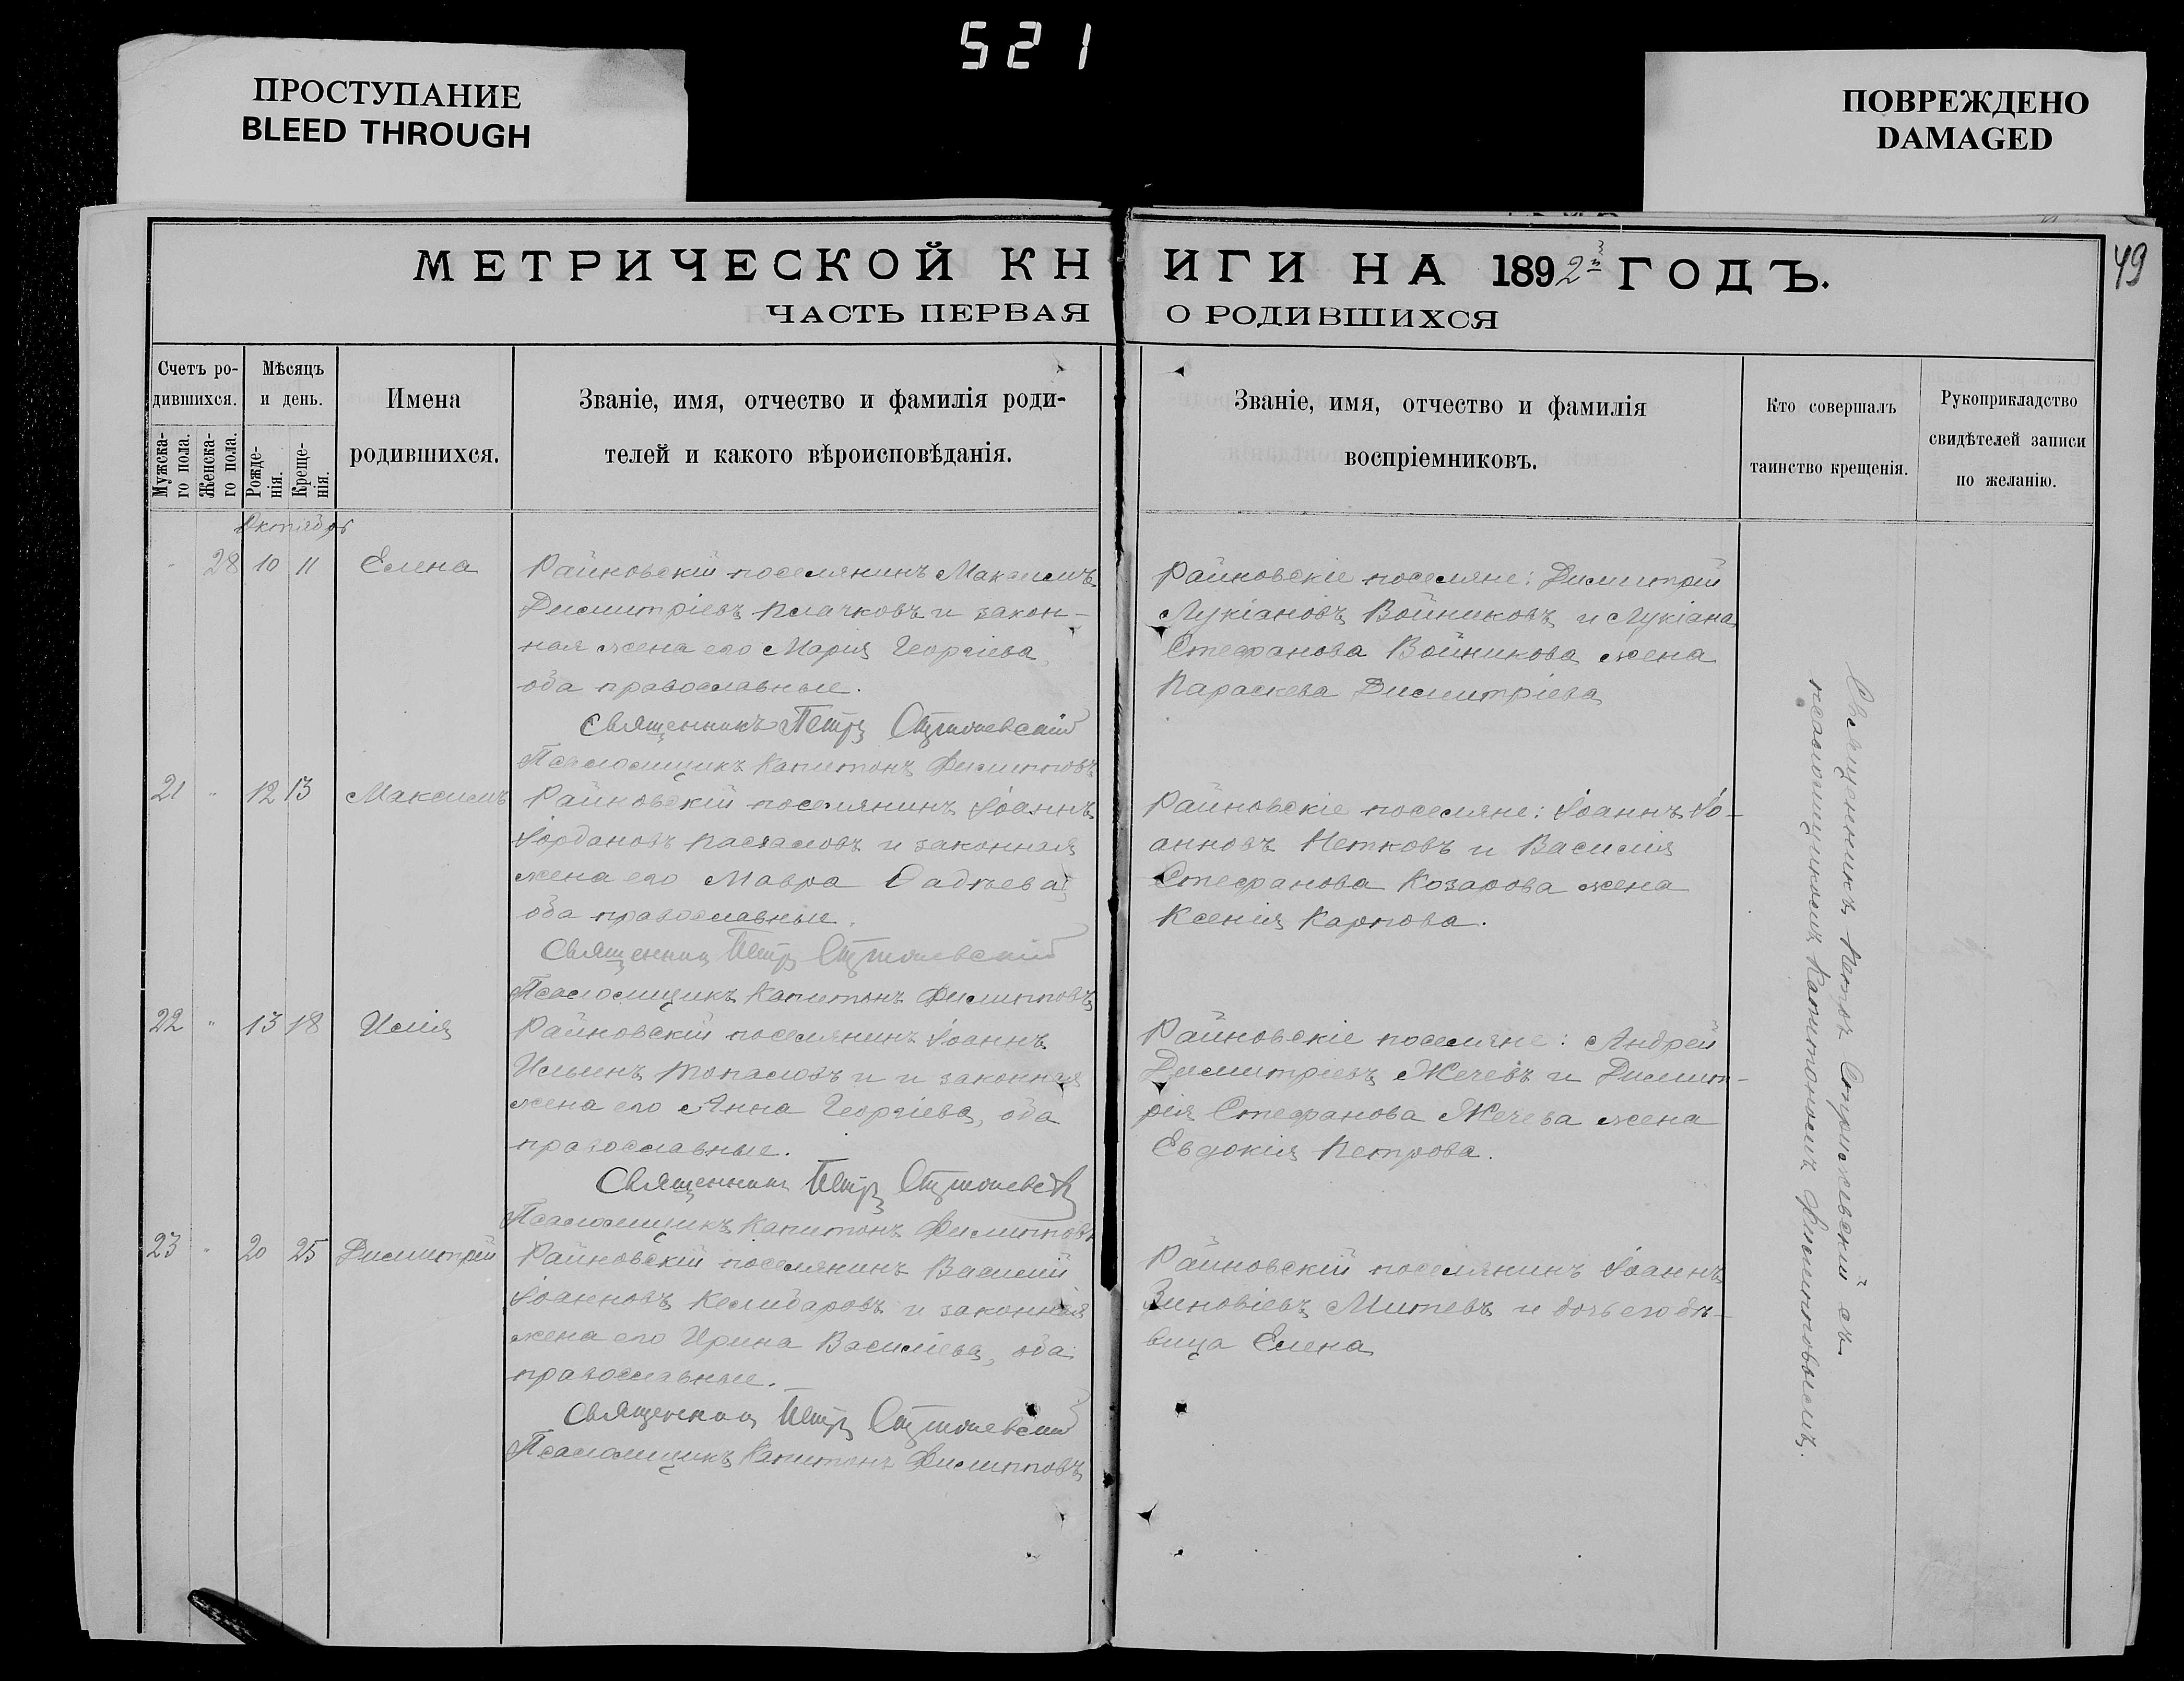 521
ПРОСТУПАНИЕ
BLEED THROUGH
ПОВРЕЖДЕНО
DAMAGED
49
МЕТРИЧЕСКОЙ КНИГИ НА 1892 й ГОДЪ.
ЧАСТЬ ПЕРВАЯ О РОДИВШИХСЯ
Счетъ ро-
дившихся.
Мужска-
го пола.
Женска-
го пола.
Мѣсяцъ
и день.
Рожде-
нія.
Креще-
нія.
Имена
родившихся.
Званіе, имя, отчество и фамилія роди-
телей и какого вѣроисповѣданія.
Званіе, имя, отчество и фамилія
воспріемниковъ.
Кто совершалъ
таинство крещенія.
Рукоприкладство
свидѣтелей записи
по желанію.
Октябрь
28 10 11 Елена
Райновскій поселянинъ Максимъ
Димитріевъ Плачковъ и закон-
ная жена его Марія Георгіева,
оба православные.
Священникъ Петръ
Псаломщикъ Капитонъ Филипповъ
Райновскіе поселяне: Димитрій
Лукіановъ Войниковъ и Лукіана
Стефанова Войникова жена
Параскева Димитріева
21 " 12 13 Максимъ
Райновскій поселянинъ Іоаннъ
Іордановъ и законная
жена его Мавра
оба православные.
Священникъ Петръ
Псаломщикъ Капитонъ Филипповъ
Райновскіе поселяне: Іоаннъ Іо-
анновъ Нетковъ и Василія
Стефанова Козарова жена
Ксенія Карпова.
22 " 13 18 Илія
Райновскій поселянинъ Іоаннъ
Ильинъ Топаловъ и и законная
жена его Анна Георгіева, оба
православные.
Священникъ Петръ
Псаломщикъ Капитонъ Филипповъ
Райновскіе поселяне: Андрей
Димитріевъ Жечевъ и Димит-
рія Стефанова Жечева жена
Евдокія Петрова.
23 " 20 25 Димитрій
Райновскій поселянинъ Василій
Іоанновъ Келибаровъ и законная
жена его Ирина Василіева, оба
православные.
Священникъ Петръ
Псаломщикъ Капитонъ Филипповъ
Райновскій поселянинъ Іоаннъ
Зиновіевъ Митевъ и дочь его дѣ-
вица Елена
Священникъ Петръ съ
псаломщикомъ Капитономъ Филипповымъ.